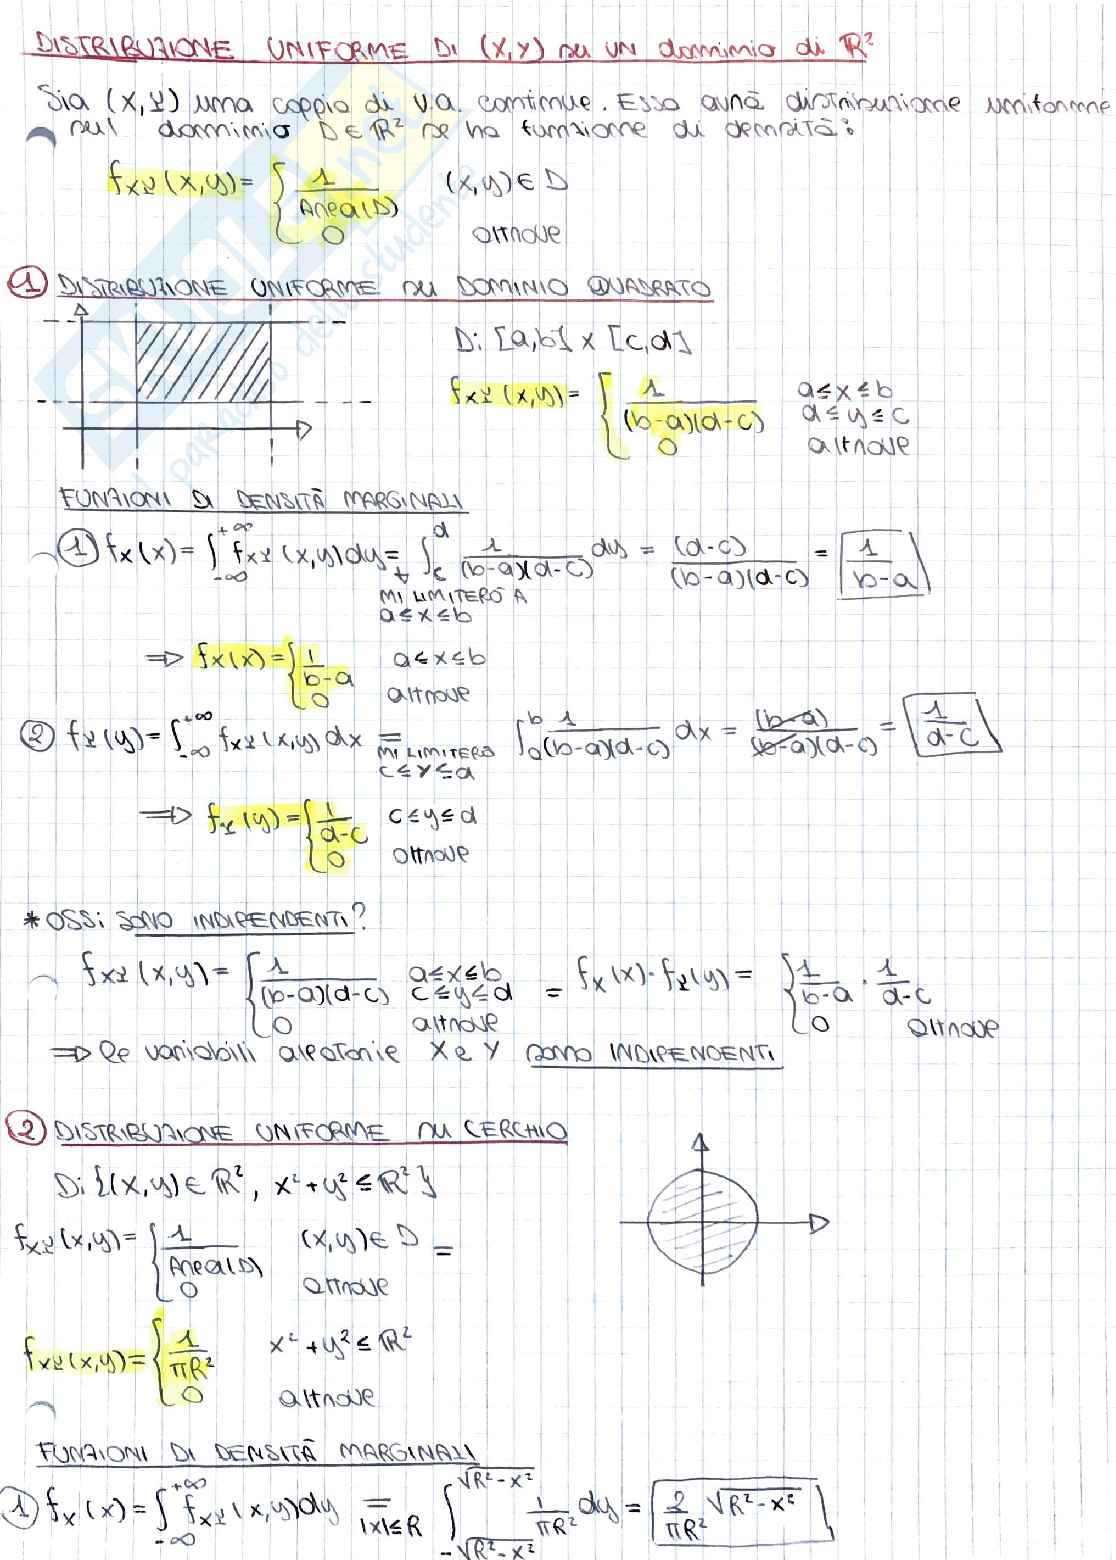 DISTRIBUZIONE UNIFORME DI (X,Y) su UN dominio di ℝ²
Sia (X,Y) una coppia di v.a. continue. Essa avrà distribuzione uniforme
sul dominio D∈ℝ² se ha funzione di densità:
fxy(x,y)= { 1/Area(D) (x,y)∈D
0 altrove
① DISTRIBUZIONE UNIFORME su DOMINIO QUADRATO
Di [a,b] x [c,d]
fxy(x,y)= { 1/(b-a)(d-c) a≤x≤b
d≤y≤c
0 altrove
FUNZIONI DI DENSITÀ MARGINALI
① fx(x)= ∫_{-∞}^{+∞} fxy(x,y)dy = ∫_c^d 1/(b-a)(d-c) dy = (d-c)/(b-a)(d-c) = 1/(b-a)
MI LIMITERÒ A
a≤x≤b
⇒ fx(x)= { 1/(b-a) a≤x≤b
0 altrove
② fy(y)= ∫_{-∞}^{+∞} fxy(x,y)dx = ∫_a^b 1/(b-a)(d-c) dx = (b-a)/(b-a)(d-c) = 1/(d-c)
MI LIMITERÒ
c≤y≤d
⇒ fy(y)= { 1/(d-c) c≤y≤d
0 altrove
* OSS: SONO INDIPENDENTI?
fxy(x,y)= { 1/(b-a)(d-c) a≤x≤b c≤y≤d = fx(x)·fy(y)= { 1/(b-a) · 1/(d-c)
0 altrove 0 altrove
⇒ le variabili aleatorie X e Y sono INDIPENDENTI
② DISTRIBUZIONE UNIFORME su CERCHIO
Di {(x,y)∈ℝ², x²+y²≤ℝ²}
fxy(x,y)= { 1/Area(D) (x,y)∈D =
0 altrove
fxy(x,y)= { 1/πR² x²+y²≤ℝ²
0 altrove
FUNZIONI DI DENSITÀ MARGINALI
① fx(x)= ∫_{-∞}^{+∞} fxy(x,y)dy = ∫_{-√R²-x²}^{√R²-x²} 1/πR² dy = 2/πR² √R²-x²
|x|≤R